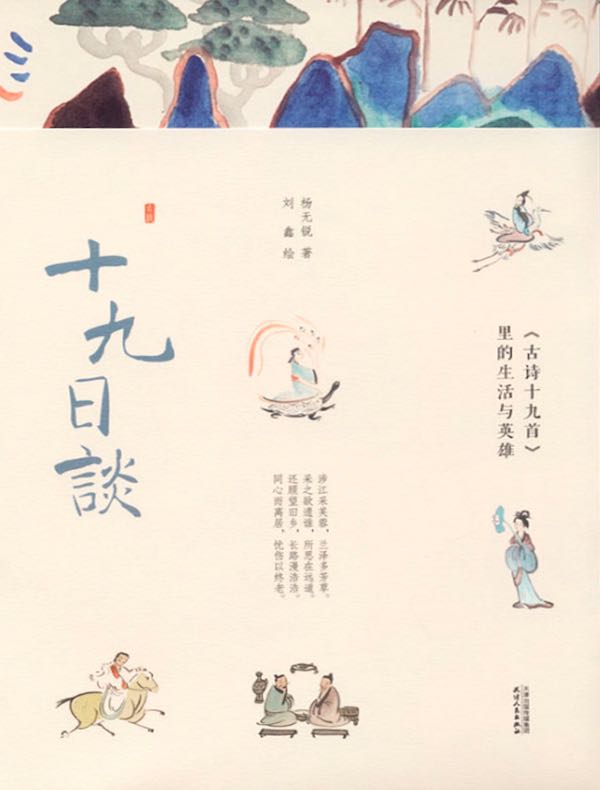 十九日談
杨无锐 著
刘鑫 绘
《古诗十九首》
里的生活与英雄
涉江采芙蓉，兰泽多芳草。
采之欲遗谁，所思在远道。
还顾望旧乡，长路漫浩浩。
同心而离居，忧伤以终老。
天津出版传媒集团
天津人民出版社